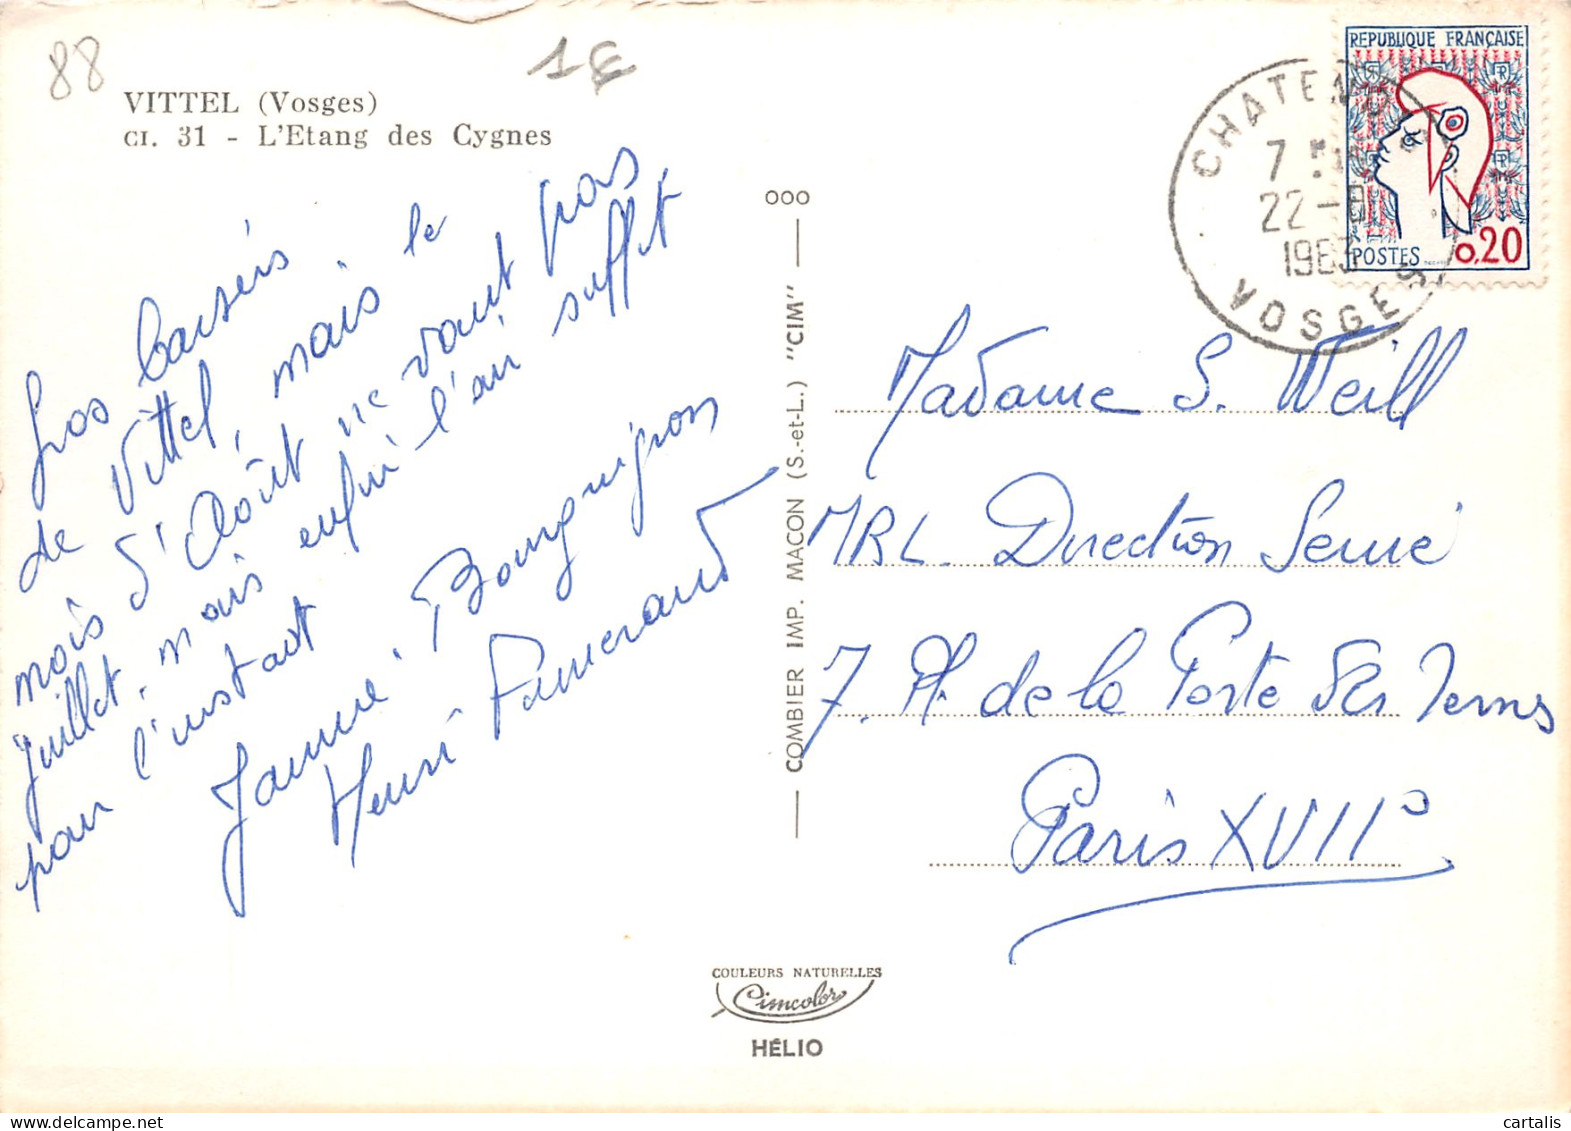 88
1E
VITTEL (Vosges)
CI. 31 - L'Etang des Cygnes
Gros baisers
de Vittel, mais le
mois d'Août ne vaut pas
Juillet, mais enfin l'air suffit
pour l'instant
Jeanne Bourguignon
Henri
000
COMBIER IMP. MACON (S.-et-L.) "CIM"
REPUBLIQUE FRANÇAISE
POSTES 0,20
CHATENOIS
7
22-8
1963
VOSGES
Madame S. Weill
MRL. Direction Service
7. Pl. de la Porte des Ternes
Paris XVIIe
COULEURS NATURELLES
Cimcolor
HÉLIO
cartalis